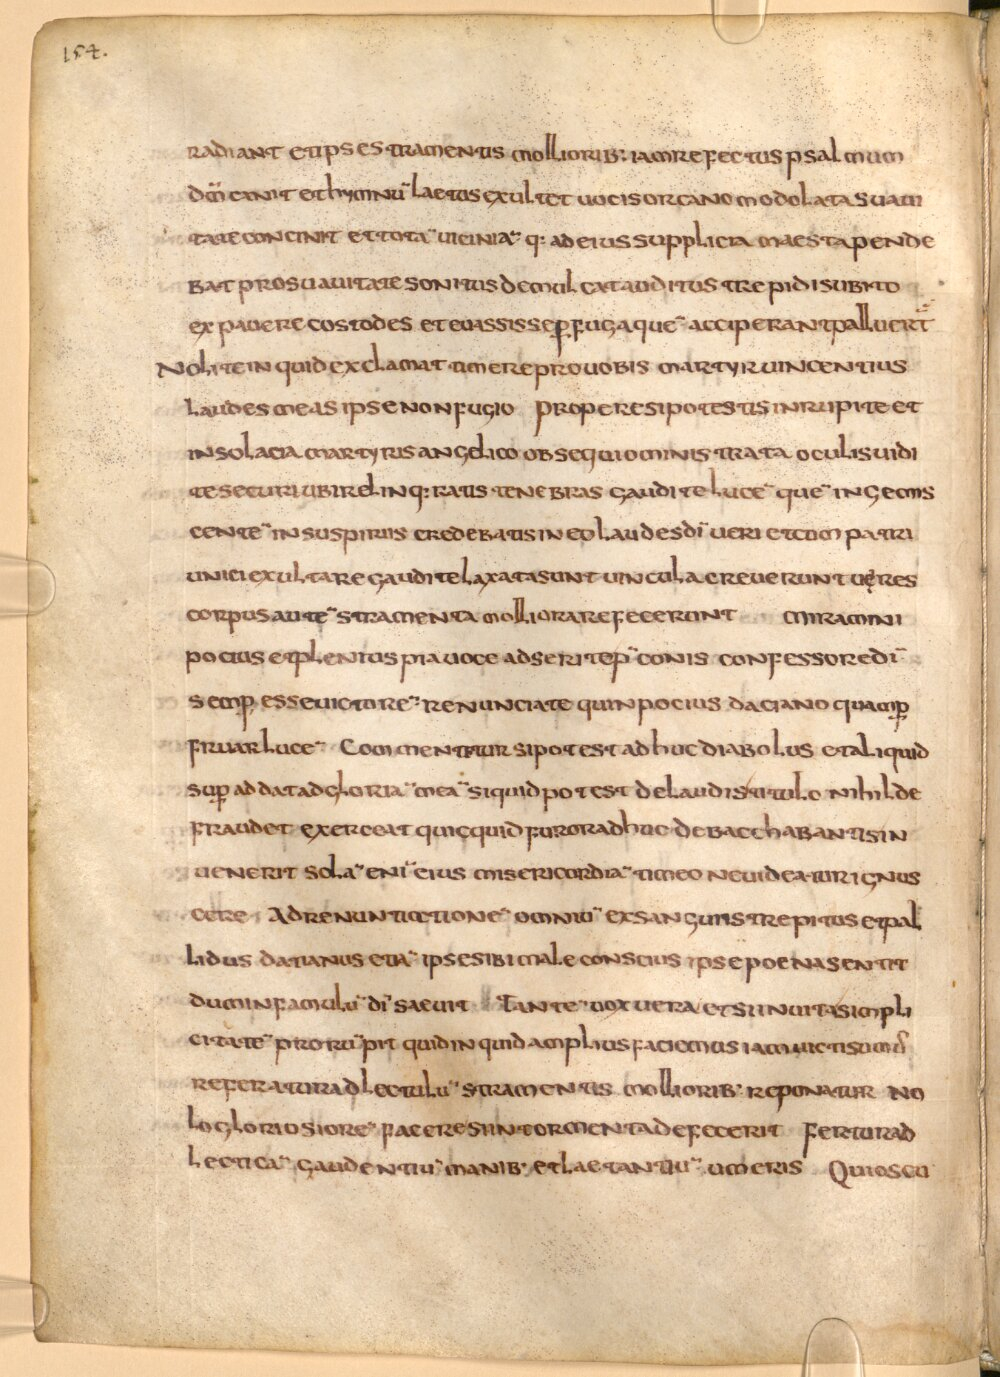 154.
radiant et ipse stramentis mollioribˑ iam refectus psalmum
dn̄i canit et hymnū laetus exultet uocis organo modolata suaui
tate concinit et totā uiciniā q: ad eius supplicia maesta pende
bat pro suauitate sonitus demulcat auditus trepidi subito
expauere custodes et euassisse ꝑ fuga quē acciperant palluert̄
Nolite inquid exclamat timere pro uobis martyr uincentius
laudes meas ipse non fugio Propere si potestis inrupite et
in solacia martyris angelico obsequio ministrata oculis uidi
te securi ubi relinq:ratis tenebras gaudite lucē quē ingemis
centē in suspiriis credebatis in eo laudes dī ueri et cum patri
unici exultare gaudite laxata sunt uincula creuerunt uęres
corpus autē stramenta molliora refecerunt Miramini
pocius et plenius pia uoce adserite p̄conis confessore dī
semꝑ esse uictorē renunciate quin pocius daciano qua inꝑ
fruar lucē Commentetur si potest adhuc diabolus et aliquid
suꝑ addat ad gloriā meā si quid potest de laudis titulo nihil de
fraudet exerceat quicquid furor adhuc debacchabantis in
uenerit solā enī eius misericordiā timeo ne uideatur ignus
cere Ad renuntiationē omniū exsanguis trepitus et pal
lidus datianus etiā ipse sibi male conscius ipse poena sentit
dum in famulū dī saeuit Tantē uox uera etsi inuita simpli
citatē prorūpit quid inquid amplius faciemus iam uicti sumus
referatur ad lectulū stramentis mollioribˑ reponatur no
lo gloriosiorē facere si in tormenta defecerit Fertur ad
lecticā gaudentiū manibˑ et laetantiū umeris Quioscu